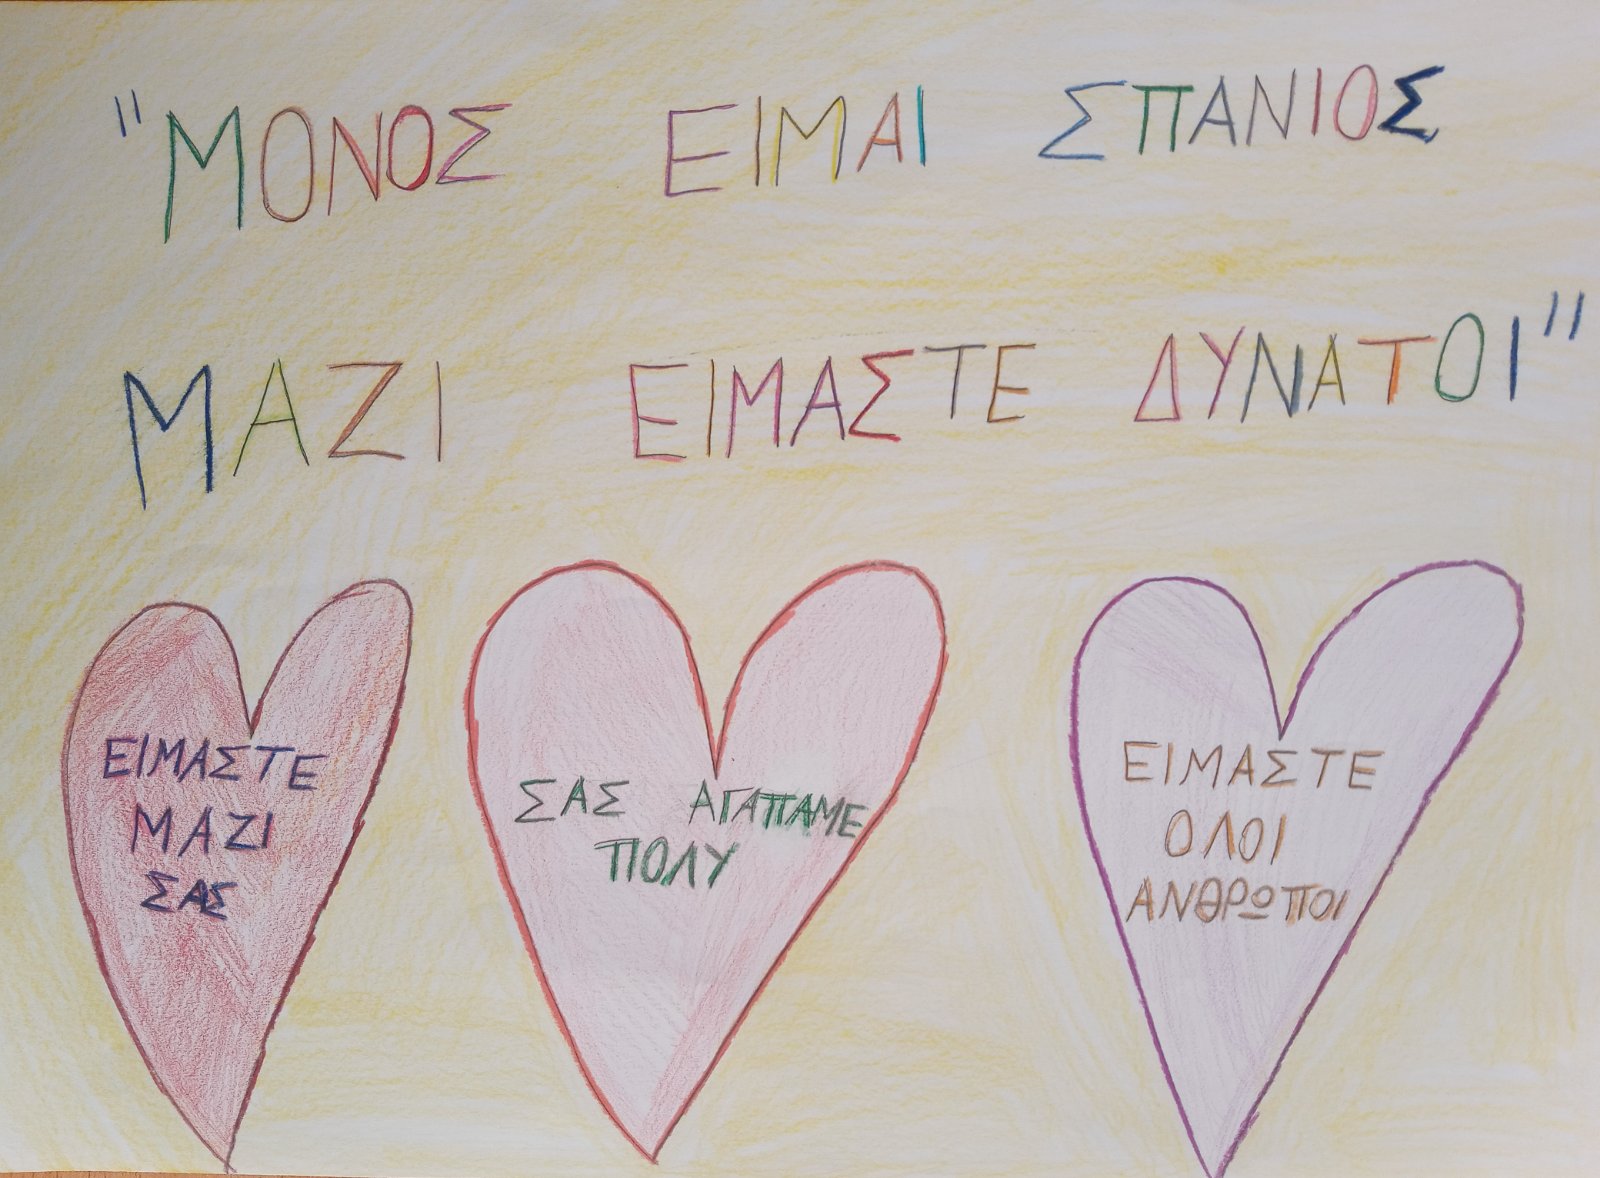 "ΜΟΝΟΣ ΕΙΜΑΙ ΣΠΑΝΙΟΣ
ΜΑΖΙ ΕΙΜΑΣΤΕ ΔΥΝΑΤΟΙ"
ΕΙΜΑΣΤΕ
ΜΑΖΙ
ΣΑΣ
ΣΑΣ ΑΓΑΠΑΜΕ
ΠΟΛΥ
ΕΙΜΑΣΤΕ
ΟΛΟΙ
ΑΝΘΡΩΠΟΙ